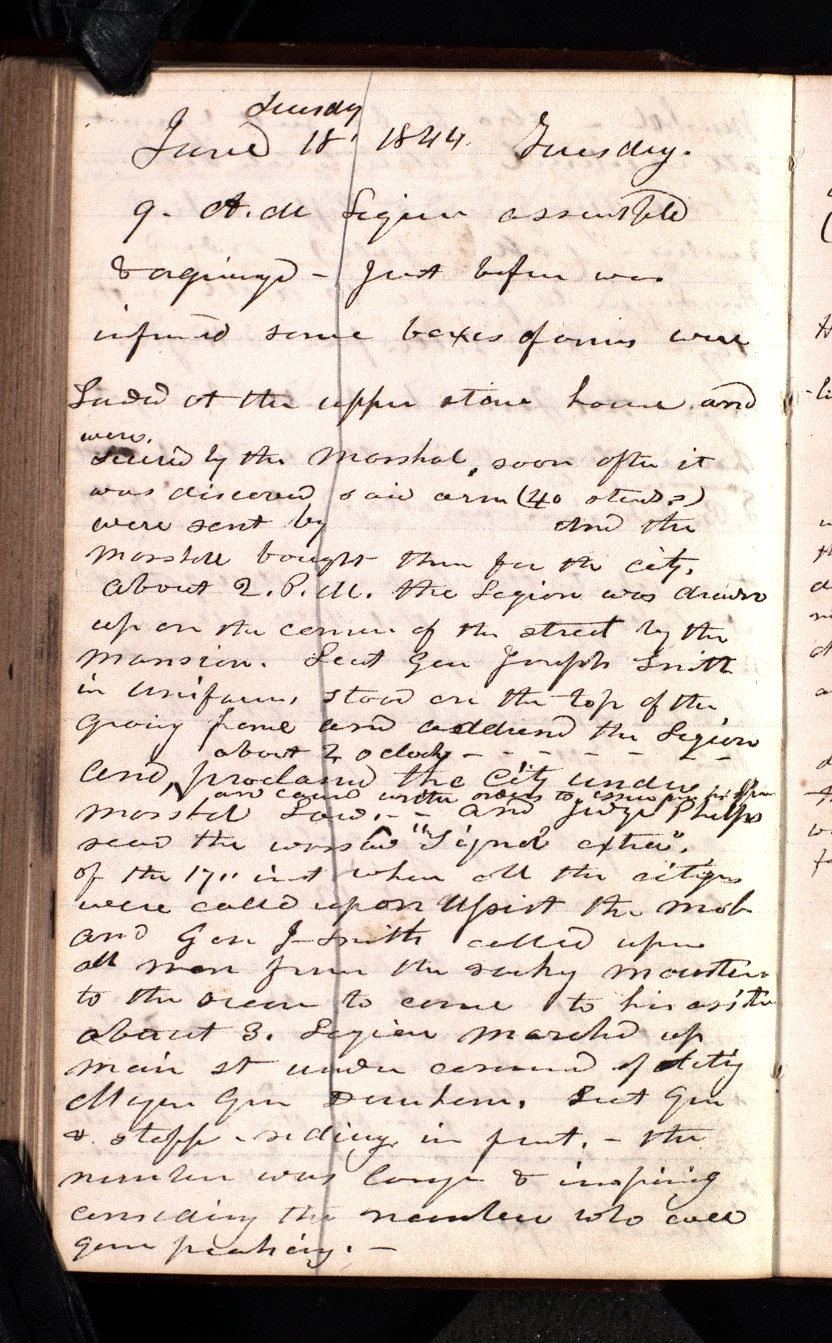 Tuesday
June 18. 1844. Tuesday.
9. A.M. Legion assembled
& organized - Just before was
informed some boxes of arms were
landed at the upper stone house and
were.
secured by the Marshal, soon after it
was discoverd said arm (40 stands)
were sent by and the
Marshall bought them for the city.
about 2. P.M. the Legion was drawn
up on the corner of the street by the
Mansion. Leut Gen Joseph Smith
in uniform, stood on the top of the
frame and addressd the Legion
about 2 oclock - - - - - -
and, proclamd the City under
and orders to
Marshal Law. - - and Judge Phelps
read the "Signal extra".
of the 17" inst when all the citizens
were called upon the mob
and Gen J- Smith called upon
all men from the rocky mountain
to the ocean to come to his
about 3. Legion marchd up
main st under command of
Major Gen Dunham. Leut Gen
& staff - riding in front. - the
number was large & inspiring
considering the number who
gone